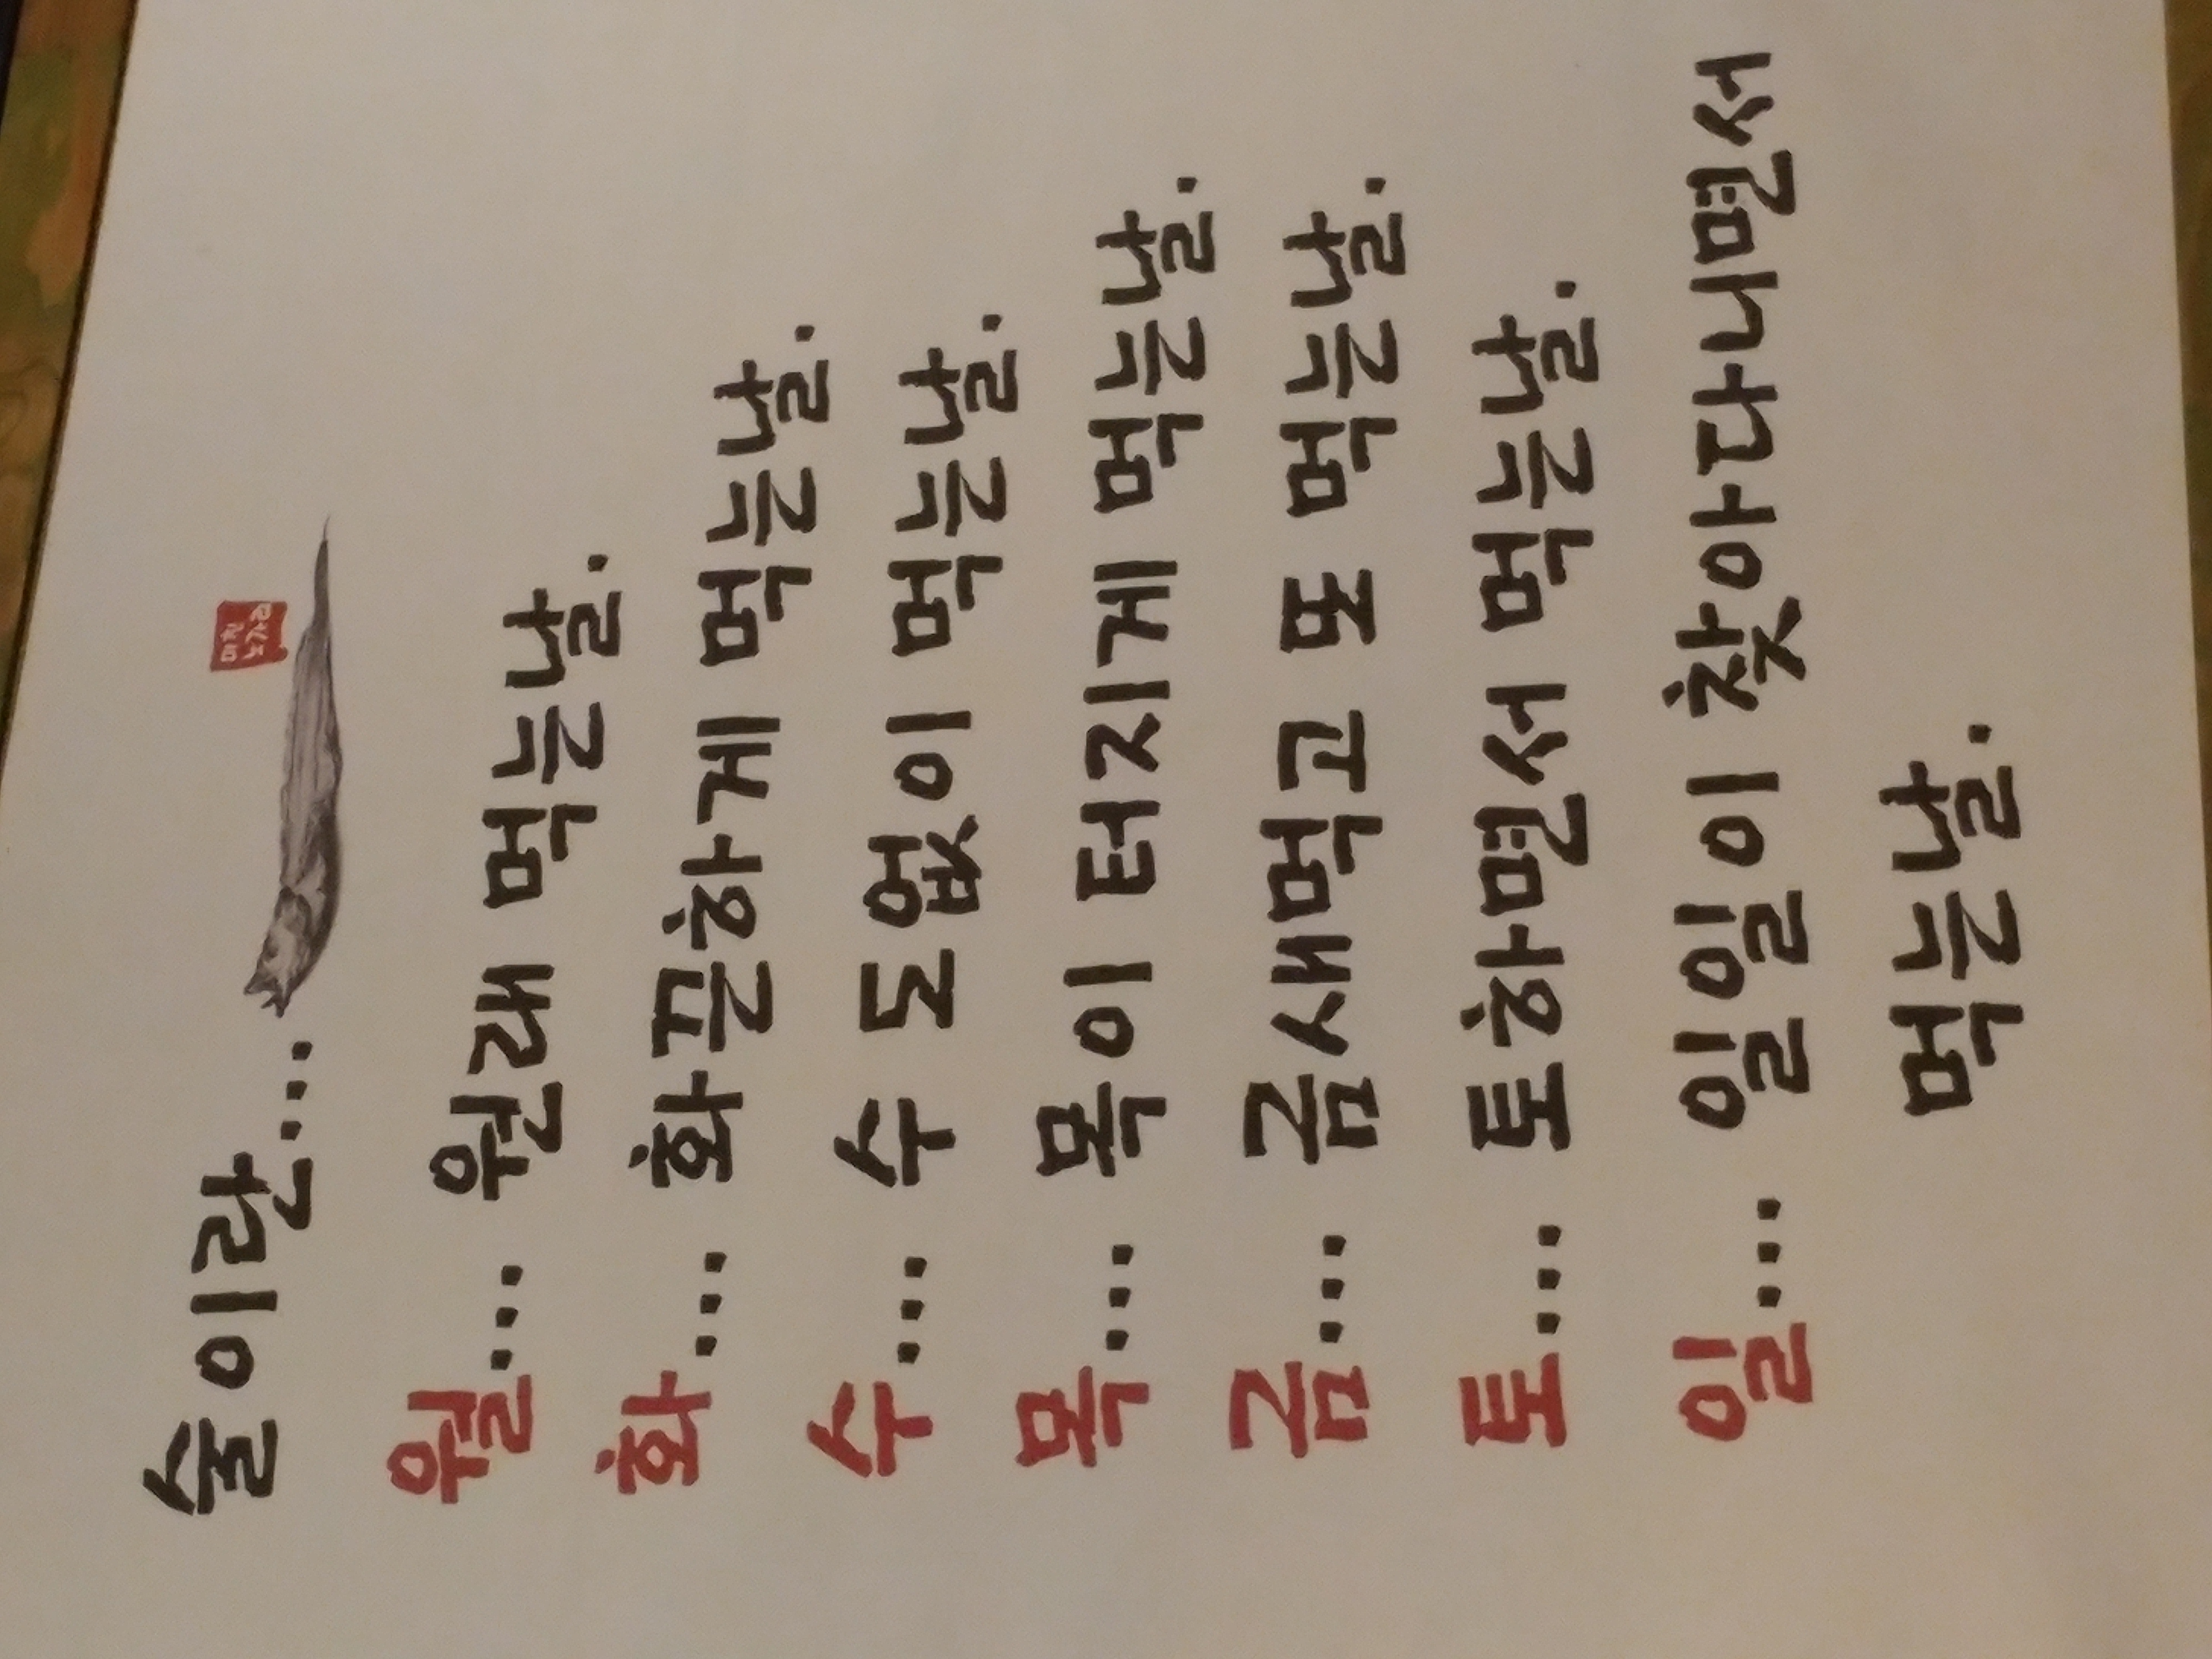 술이란...
월... 원래 먹는날.
화... 화끈하게 먹는날.
수... 수 도 없이 먹는날.
목... 목이 터지게 먹는날.
금... 금새먹고 또 먹는날.
토... 토하면서 먹는날.
일... 일일이 찾아다니면서
먹는날.